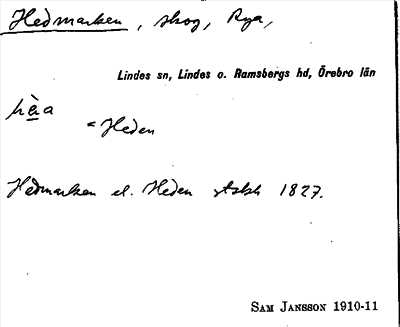 Hedmarken, skog, Rya,
Lindes sn, Lindes o. Ramsbergs hd, Örebro län
hè̱a
= Heden
Hedmarken el. Heden 1827.
SAM JANSSON 1910-11